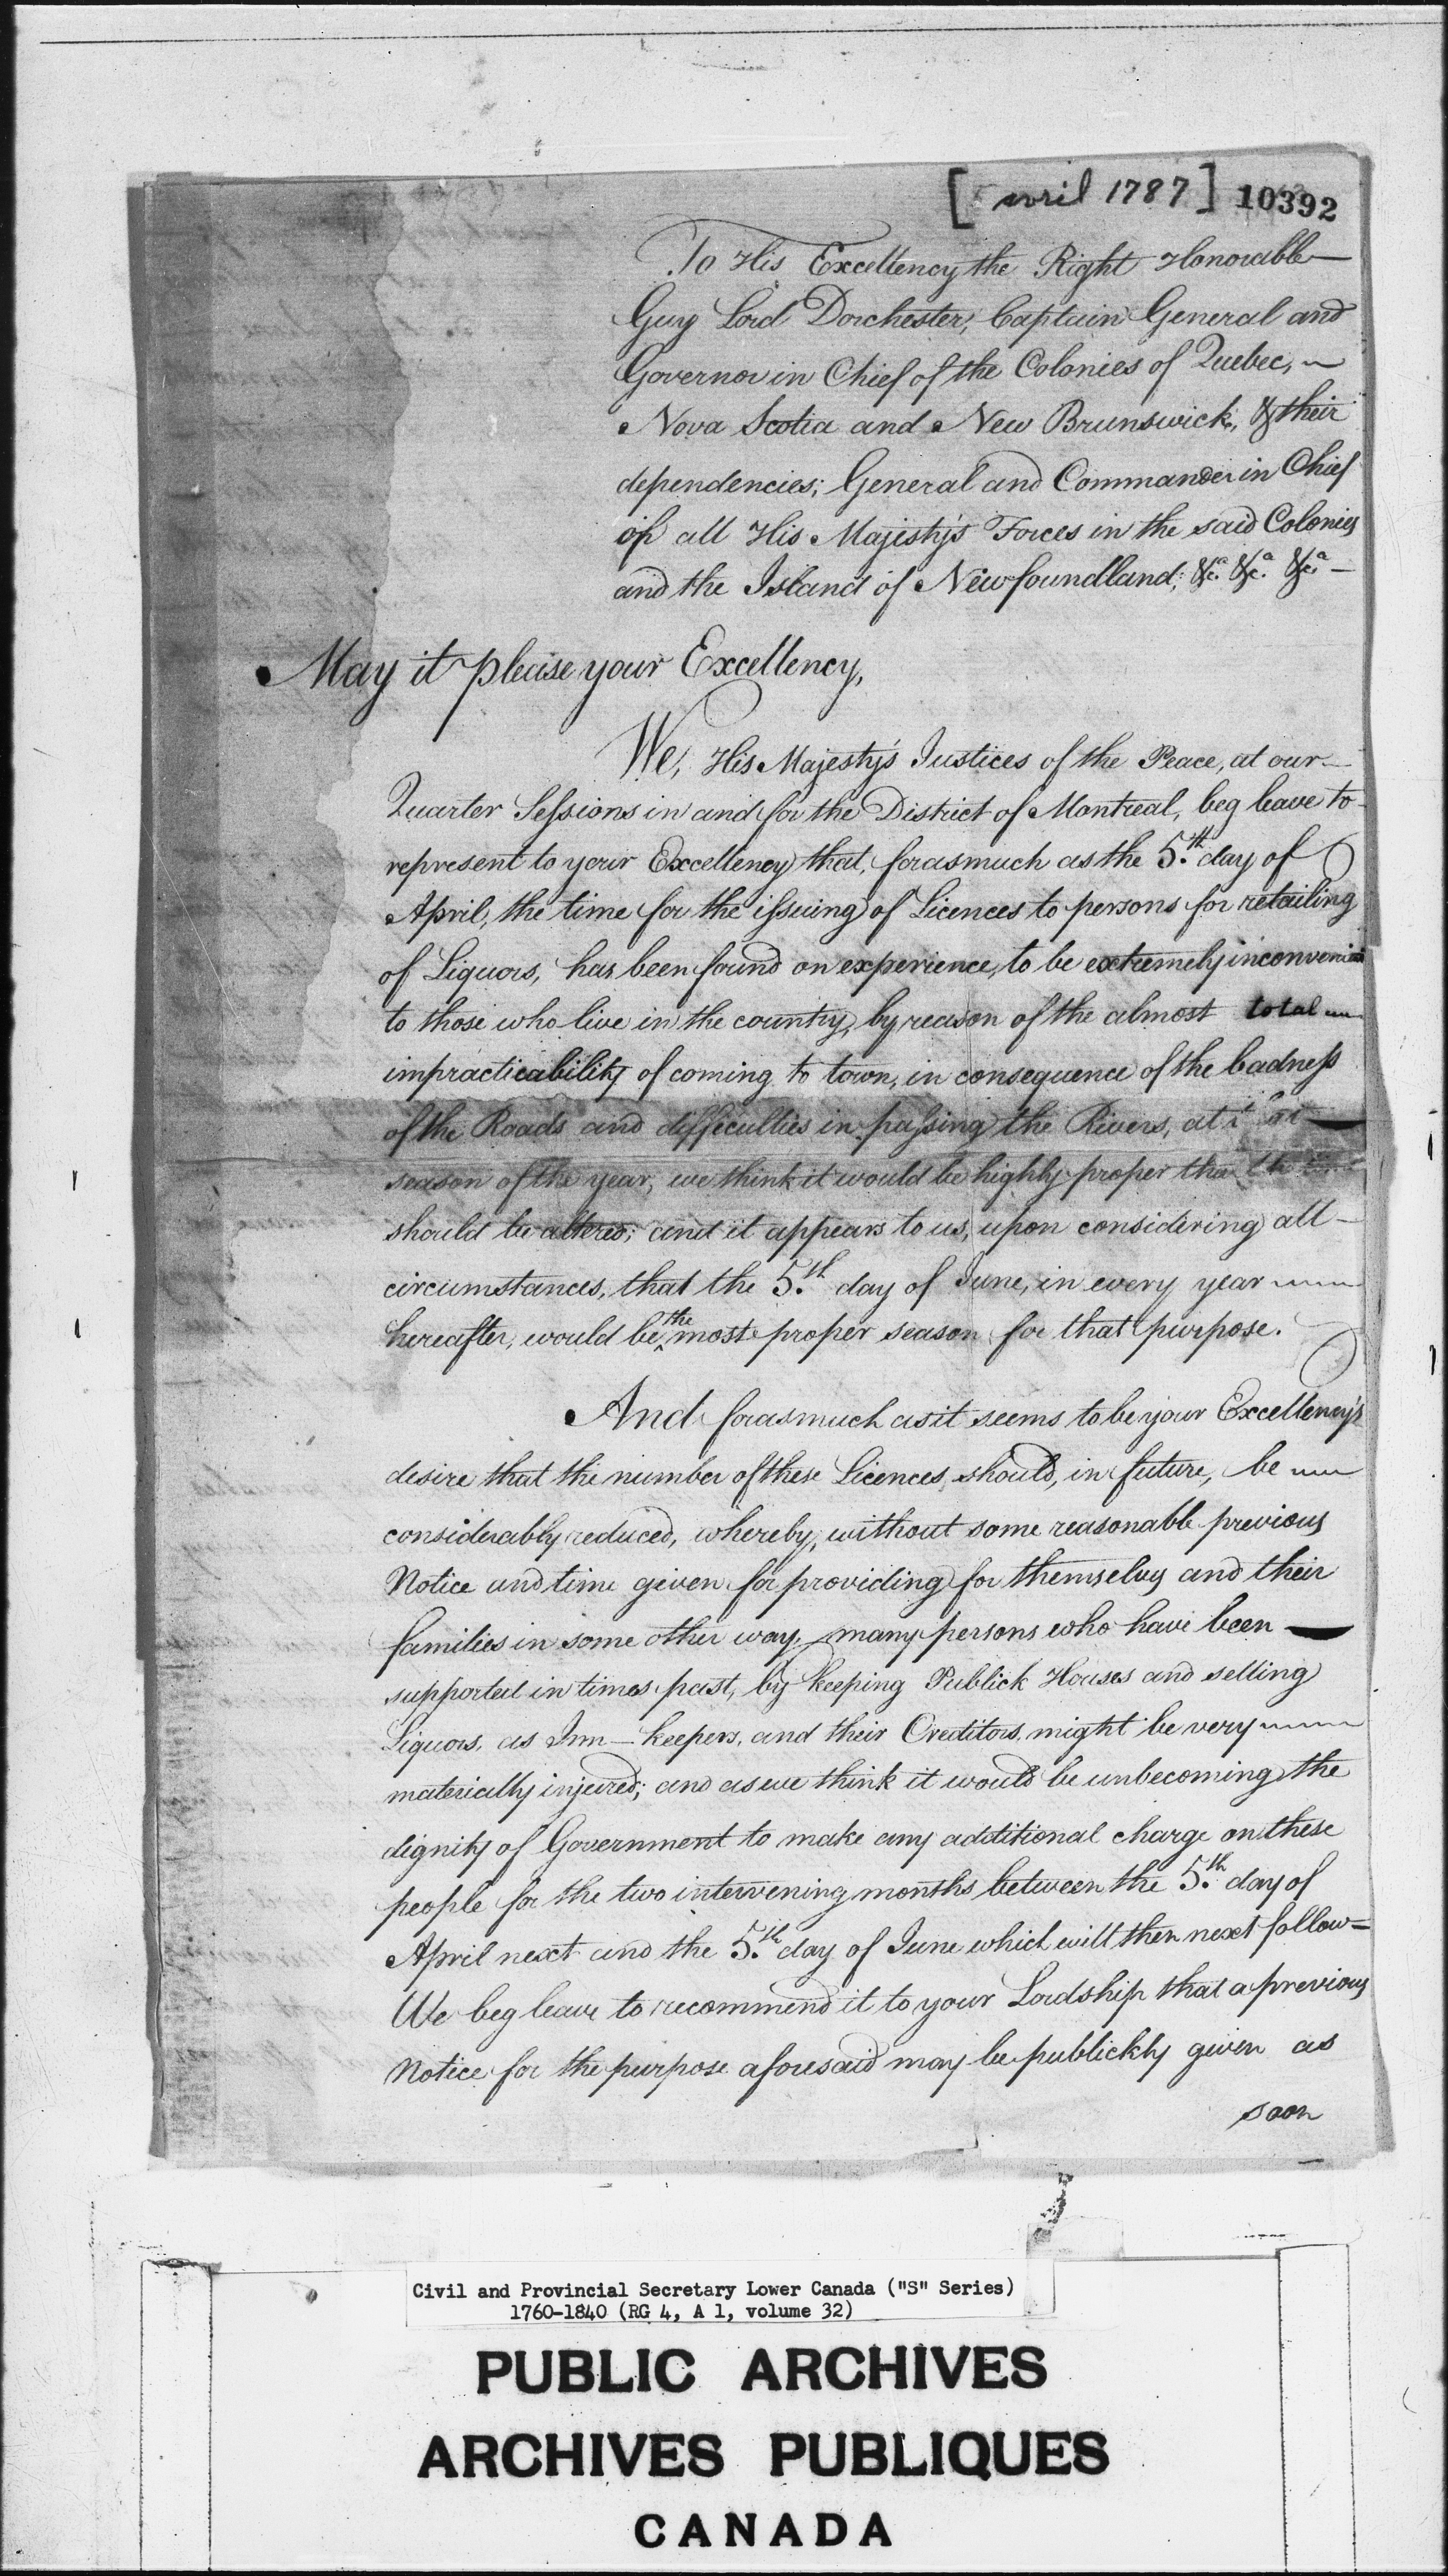 [ avril 1787 ] 10392
To His Excellency the Right Honorable
Guy Lord Dorchester, Captain General and
Governor in Chief of the Colonies of Quebec,
Nova Scotia and New Brunswick, & their
dependencies; General and Commander in Chief
of all His Majesty's Forces in the said Colonies
and the Island of Newfoundland; &c.a &c.a &c.a
May it please your Excellency,
We, His Majesty's Justices of the Peace, at our
Quarter Sessions in and for the District of Montreal, beg leave to
represent to your Excellency that, forasmuch as the 5.th day of
April, the time for the issuing of Licences to persons for retailing
of Liquors, has been found on experience, to be extremely inconvenient
to those who live in the country, by reason of the almost total
impracticability of coming to town, in consequence of the badness
of the Roads and difficulties in passing the Rivers, at that
season of the year, we think it would be highly proper that the time
should be altered; and it appears to us, upon considering all
circumstances, that the 5.th day of June, in every year
hereafter, would be the most proper season for that purpose.
And forasmuch as it seems to be your Excellency's
desire that the number of these Licences, should, in future, be
considerably reduced, whereby, without some reasonable previous
Notice and time given for providing for themselves and their
families in some other way, many persons who have been
supported in times past, by keeping Publick Houses and selling
Liquors, as Inn-keepers, and their Creditors, might be very
materially injured; and as we think it would be unbecoming the
dignity of Government to make any additional charge on these
people for the two intervening months between the 5.th day of
April next and the 5.th day of June which will then next follow=
We beg leave to recommend it to your Lordship that a previous
Notice for the purpose aforesaid may be publickly given as
soon
Civil and Provincial Secretary Lower Canada ("S" Series)
1760-1840 (RG 4, A 1, volume 32)
PUBLIC ARCHIVES
ARCHIVES PUBLIQUES
CANADA